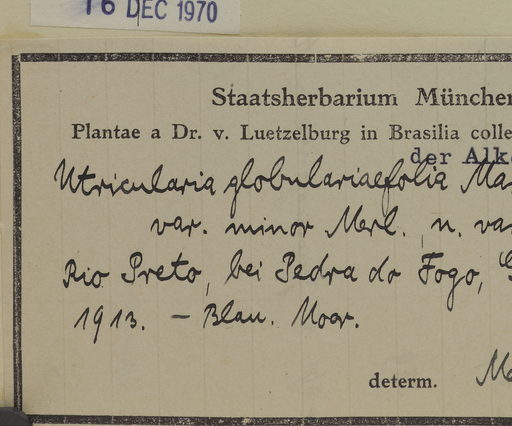 16 DEC 1970
Staatsherbarium München
Plantae a Dr. v. Luetzelburg in Brasilia colle
der Alka
Utricularia globulariaefolia Ma
var. minor Merl. n. va
Rio Preto, bei Pedra do Fogo,
1913. – Blau. Moor.
determ. M